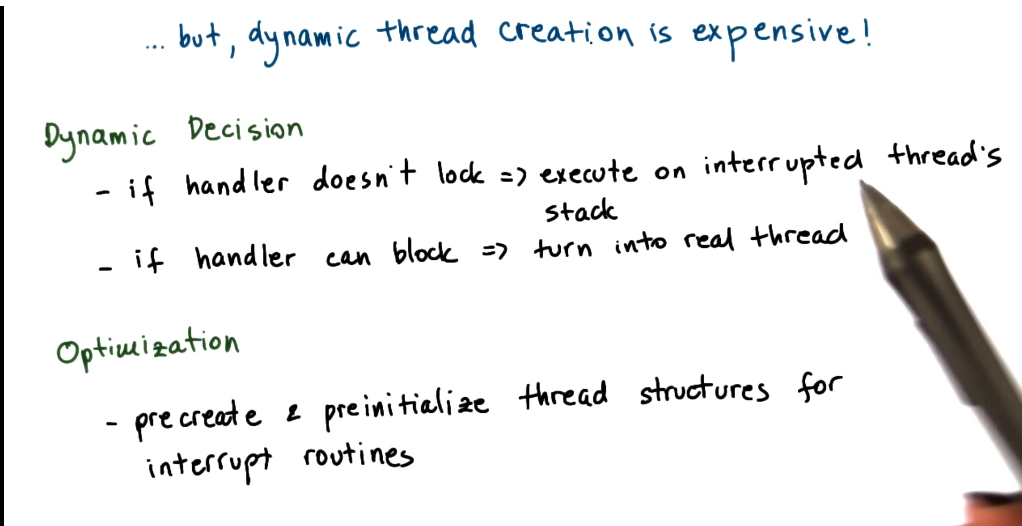 ... but, dynamic thread creation is expensive!
Dynamic Decision
- if handler doesn't lock => execute on interrupted thread's
stack
- if handler can block => turn into real thread
Optimization
- precreate & preinitialize thread structures for
interrupt routines